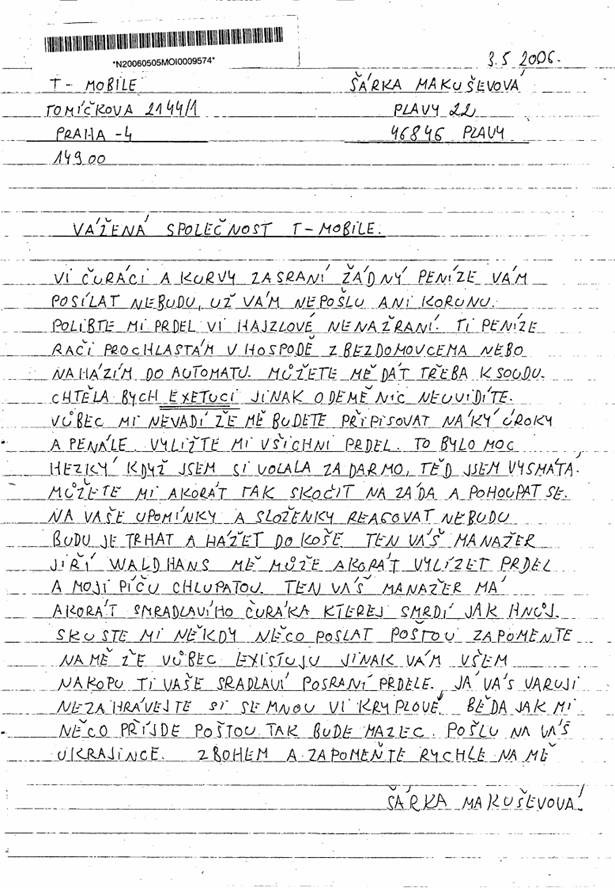 *N20060505MOI0009574*
3.5 2006.
T- MOBILE ŠÁRKA MAKUŠEVOVÁ
TOMÍČKOVA 2144/1 PLAVY 22
PRAHA -4 46846 PLAVY
149 00
VÁŽENÁ SPOLEČNOST T-MOBILE.
VI ČURÁCI A KURVY ZASRANÍ ŽÁDNÝ PENÍZE VÁM
POSÍLAT NEBUDU, UŽ VÁM NEPOŠLU ANI KORUNU.
POLIBTE MI PRDEL VI HAJZLOVÉ NENAŽRANÍ. TI PENÍZE
RAČI PROCHLASTÁM V HOSPODĚ Z BEZDOMOVCEMA NEBO
NAHÁZÍM DO AUTOMATU. MŮŽETE MĚ DÁT TŘEBA K SOUDU.
CHTĚLA BYCH EXETUCI JINAK ODEMĚ NIC NEUVIDÍTE.
VŮBEC MI NEVADÍ ŽE MĚ BUDETE PŘIPISOVAT NÁKÝ ÚROKY
A PENÁLE. VYLIŽTE MI VŠICHNI PRDEL. TO BYLO MOC
HEZKÝ KDYŽ JSEM SI VOLALA ZA DARMO, TĚĎ JSEM VYSMÁTÁ.
MŮŽETE MI AKORÁT TAK SKOČIT NA ZÁDA A POHOUPAT SE.
NA VAŠE UPOMÍNKY A SLOŽENKY REAGOVAT NEBUDU
BUDU JE TRHAT A HÁZET DO KOŠE. TEN VÁŠ MANAŽER
JIŘÍ WALDHANS MĚ MŮŽE AKORÁT VYLÍZET PRDEL
A MOJÍ PÍČU CHLUPATOU. TEN VÁŠ MANAŽER MÁ
AKORÁT SMRADLAVÍHO ČURÁKA KTEREJ SMRDÍ JAK HNŮJ.
SKUSTE MI NĚKDY NĚCO POSLAT POŠTOU ZAPOMENTE
NAMĚ ŽE VŮBEC EXISTUJU JINAK VÁM VŠEM
NAKOPU TI VAŠE SRADLAVÍ POSRANÍ PRDELE. JÁ VÁS VARUJI
NEZAHRÁVEJTE SI SE MNOU VI KRYPLOVÉ. BĚDA JAK MI
NĚCO PŘÍJDE POŠTOU TAK BUDE MAZEC. POŠLU NA VÁS
UKRAJINCE. ZBOHEM A ZAPOMEŇTE RYCHLE NA MĚ
ŠÁRKA MAKUŠEVOVÁ!